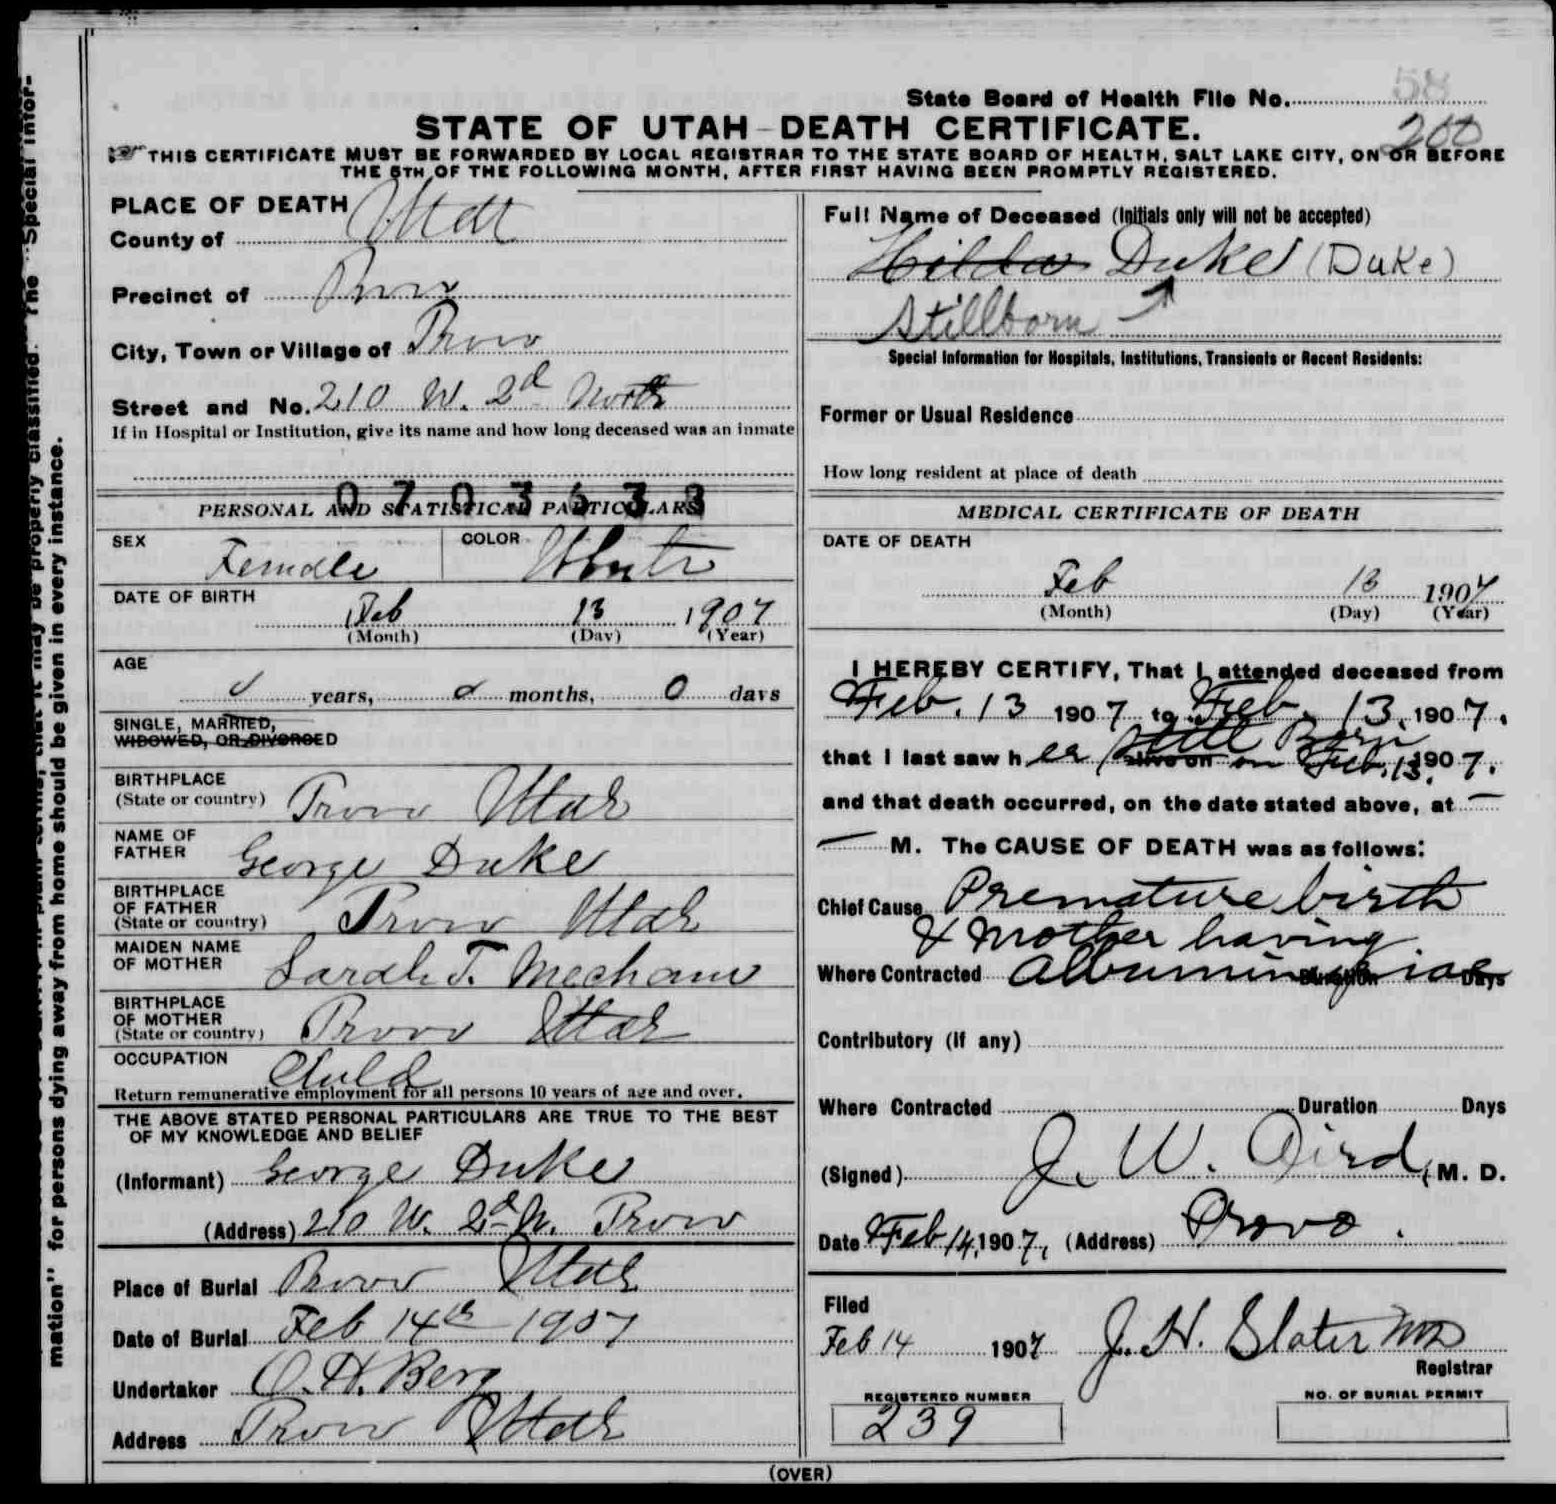 State Board of Health File No. 58
200
STATE OF UTAH—DEATH CERTIFICATE.
THIS CERTIFICATE MUST BE FORWARDED BY LOCAL REGISTRAR TO THE STATE BOARD OF HEALTH, SALT LAKE CITY, ON OR BEFORE
THE 5TH OF THE FOLLOWING MONTH, AFTER FIRST HAVING BEEN PROMPTLY REGISTERED.
PLACE OF DEATH
County of Utah
Precinct of Provo
City, Town or Village of Provo
Street and No. 210 W. 2d North
If in Hospital or Institution, give its name and how long deceased was an inmate
0703633
PERSONAL AND STATISTICAL PARTICULARS
SEX Female COLOR White
DATE OF BIRTH
Feb 13 1907
(Month) (Day) (Year)
AGE
0 years, 0 months, 0 days
SINGLE, MARRIED,
WIDOWED, OR DIVORCED
BIRTHPLACE
(State or country) Provo Utah
NAME OF
FATHER George Duke
BIRTHPLACE
OF FATHER
(State or country) Provo Utah
MAIDEN NAME
OF MOTHER Sarah T. Mecham
BIRTHPLACE
OF MOTHER
(State or country) Provo Utah
OCCUPATION Child
Return remunerative employment for all persons 10 years of age and over.
THE ABOVE STATED PERSONAL PARTICULARS ARE TRUE TO THE BEST
OF MY KNOWLEDGE AND BELIEF
(Informant) George Duke
(Address) 210 W. 2d N. Provo
Place of Burial Provo Utah
Date of Burial Feb 14th 1907
Undertaker O. H. Berg
Address Provo Utah
Full Name of Deceased (Initials only will not be accepted)
Hilda Duke (Duke)
Stillborn
Special Information for Hospitals, Institutions, Transients or Recent Residents:
Former or Usual Residence
How long resident at place of death
MEDICAL CERTIFICATE OF DEATH
DATE OF DEATH
Feb 13 1907
(Month) (Day) (Year)
I HEREBY CERTIFY, That I attended deceased from
Feb. 13 1907 to Feb. 13, 1907.
Still Born
that I last saw her alive on on Feb. 13. 1907.
and that death occurred, on the date stated above, at —
— M. The CAUSE OF DEATH was as follows:
Chief Cause Premature birth
& Mother having
Where Contracted Albuminuria Duration Days
Contributory (if any)
Where Contracted Duration Days
(Signed) J. W. Aird, M. D.
Date Feb 14, 1907, (Address) Provo.
Filed
Feb 14 1907 J. H. Slater MD
Registrar
REGISTERED NUMBER
239
NO. OF BURIAL PERMIT
(OVER)
mation" for persons dying away from home should be given in every instance.
be properly classified. The "Special Infor-